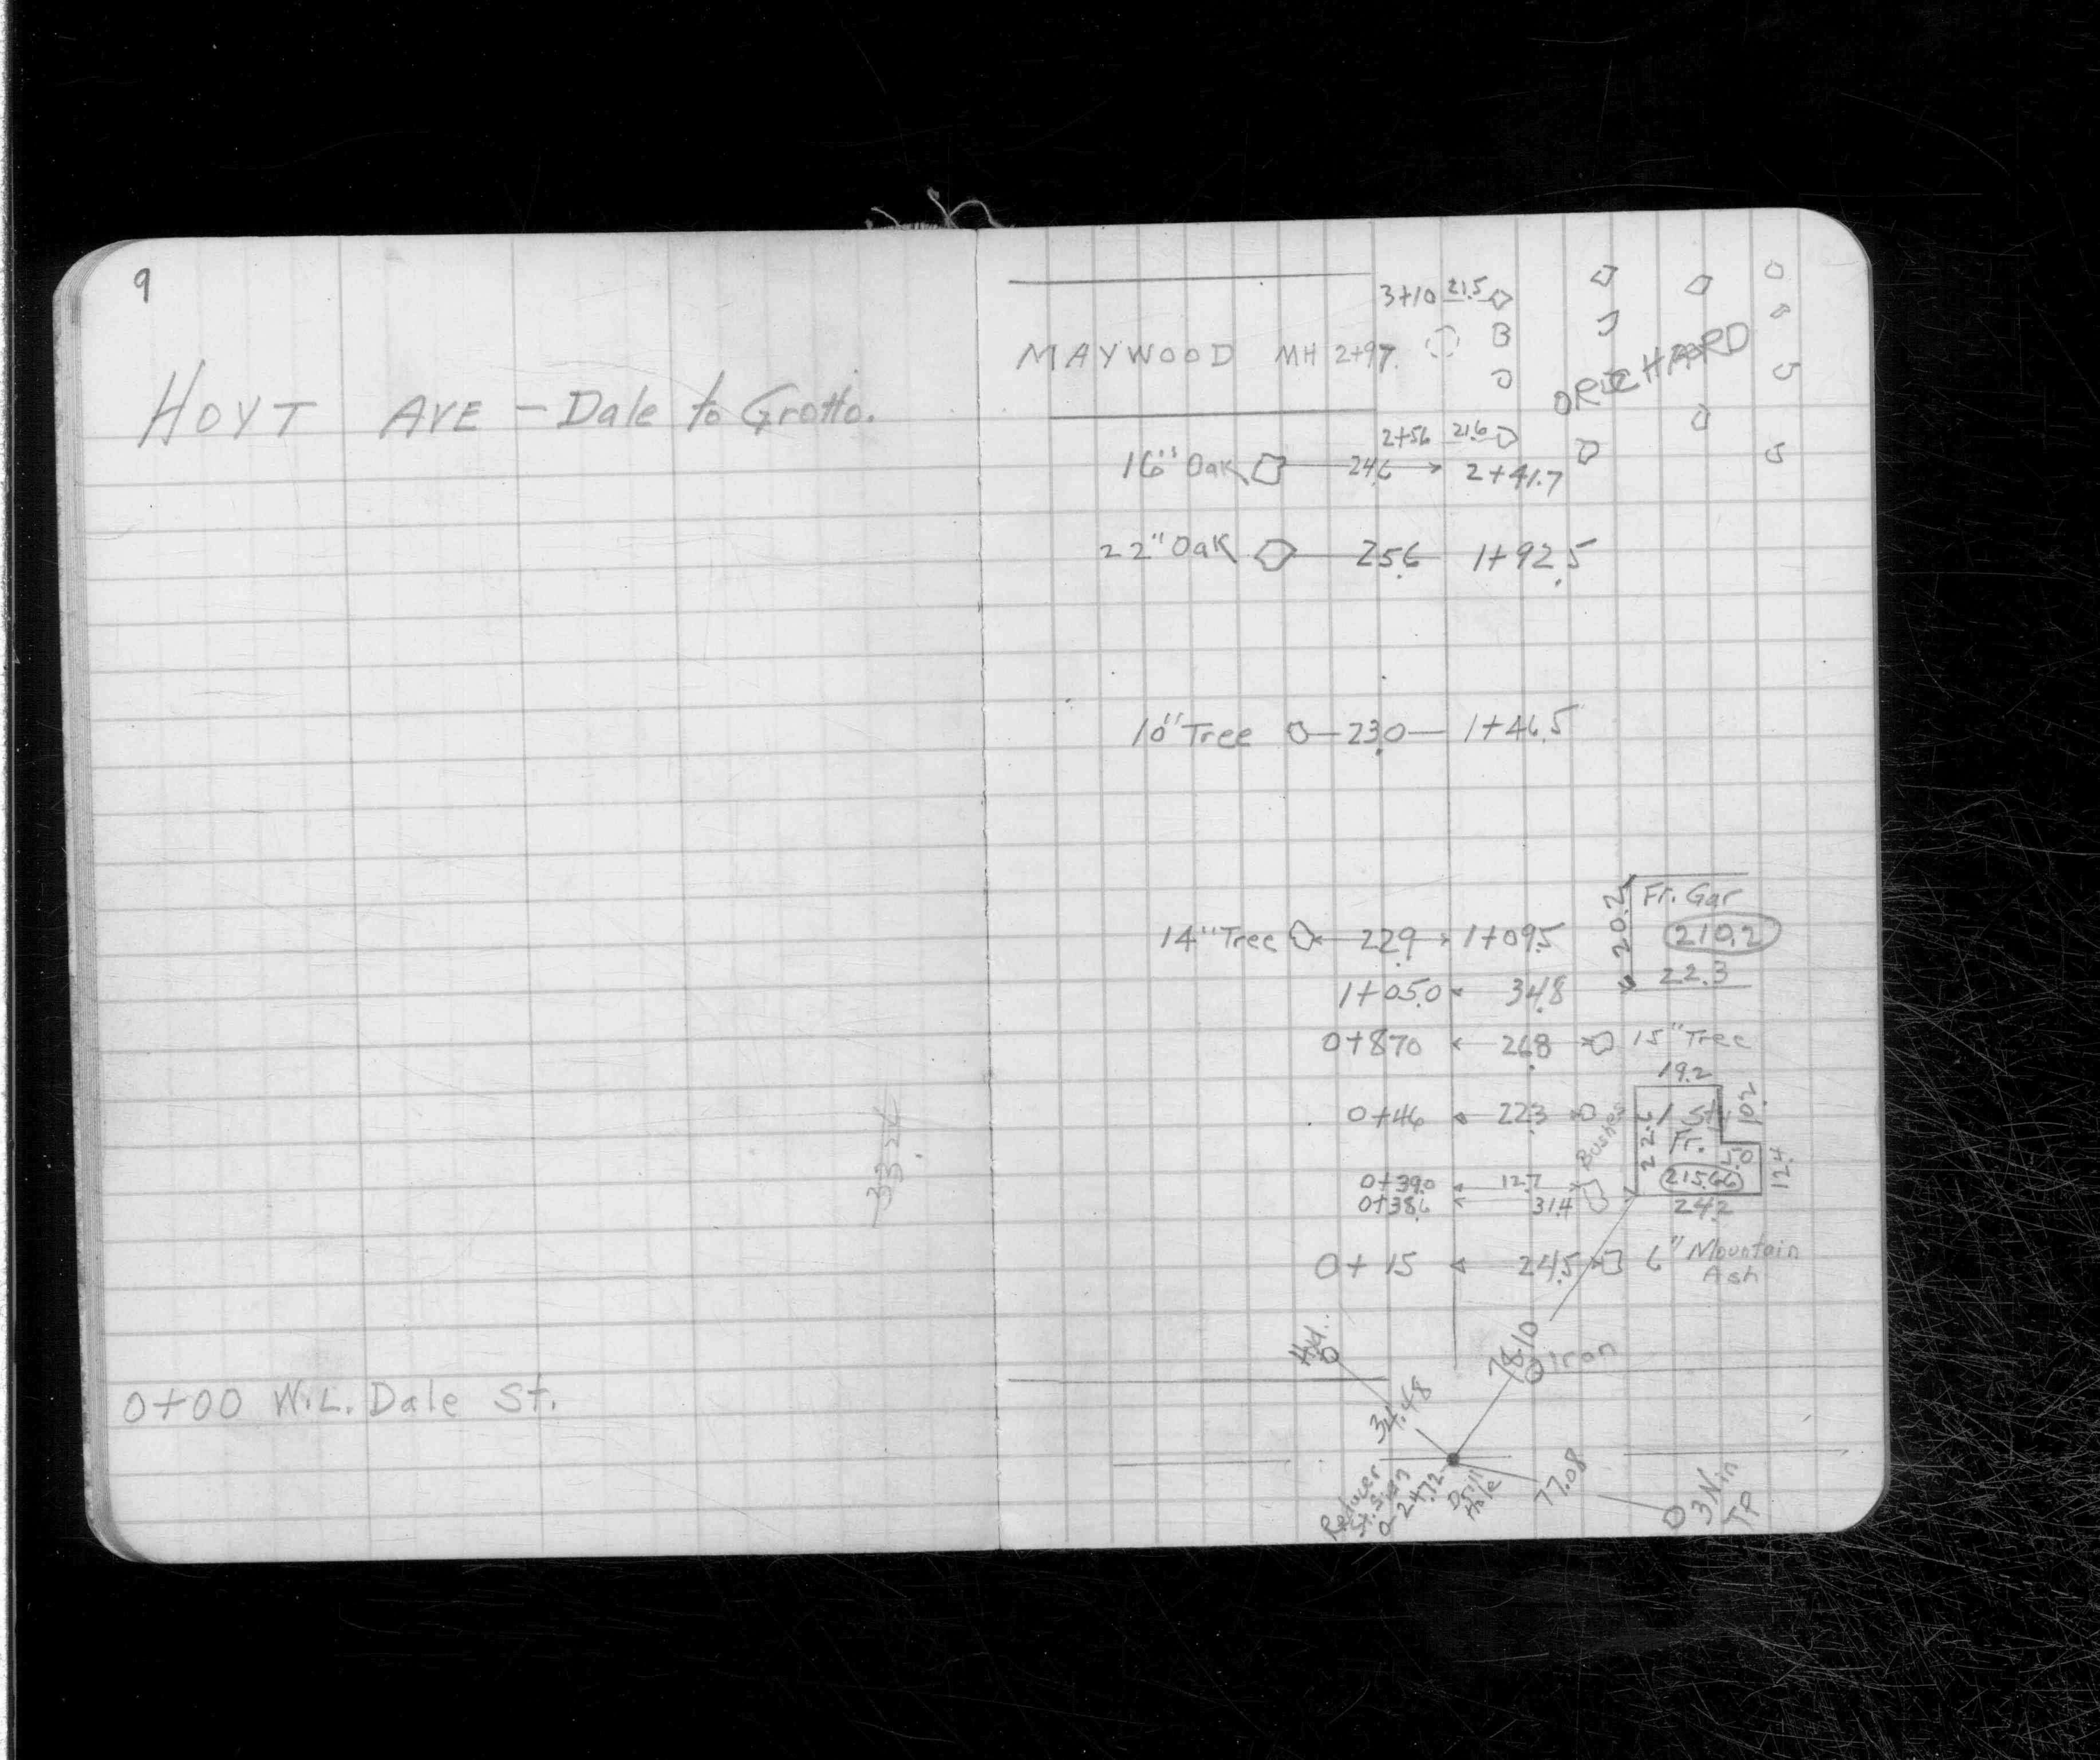 9
HOYT AVE - Dale to Grotto.
0+00 W.L. Dale St.
3+10 21.5
MAYWOOD MH 2+97
ORCHARD
2+56 21.6
16" Oak 24.6 2+41.7
22" Oak 25.6 1+92.5
10" Tree 23.0 1+46.5
Fr. Gar
20.2
210.2
22.3
14" Tree 22.9 1+09.5
1+05.0 34.8
0+87.0 26.8 15" Tree
19.2
0+46 22.3 Bushes
22.6 1 St. 10.2
Fr. 5.0
215.66 12.4
0+39.0 12.7
0+38.6 31.4
24.2
0+15 24.5 6" Mountain
Ash
Hyd.
78.10
Iron
34.48
Drill
Hole
77.08
3 N in
TP
Reducer
0-247.2